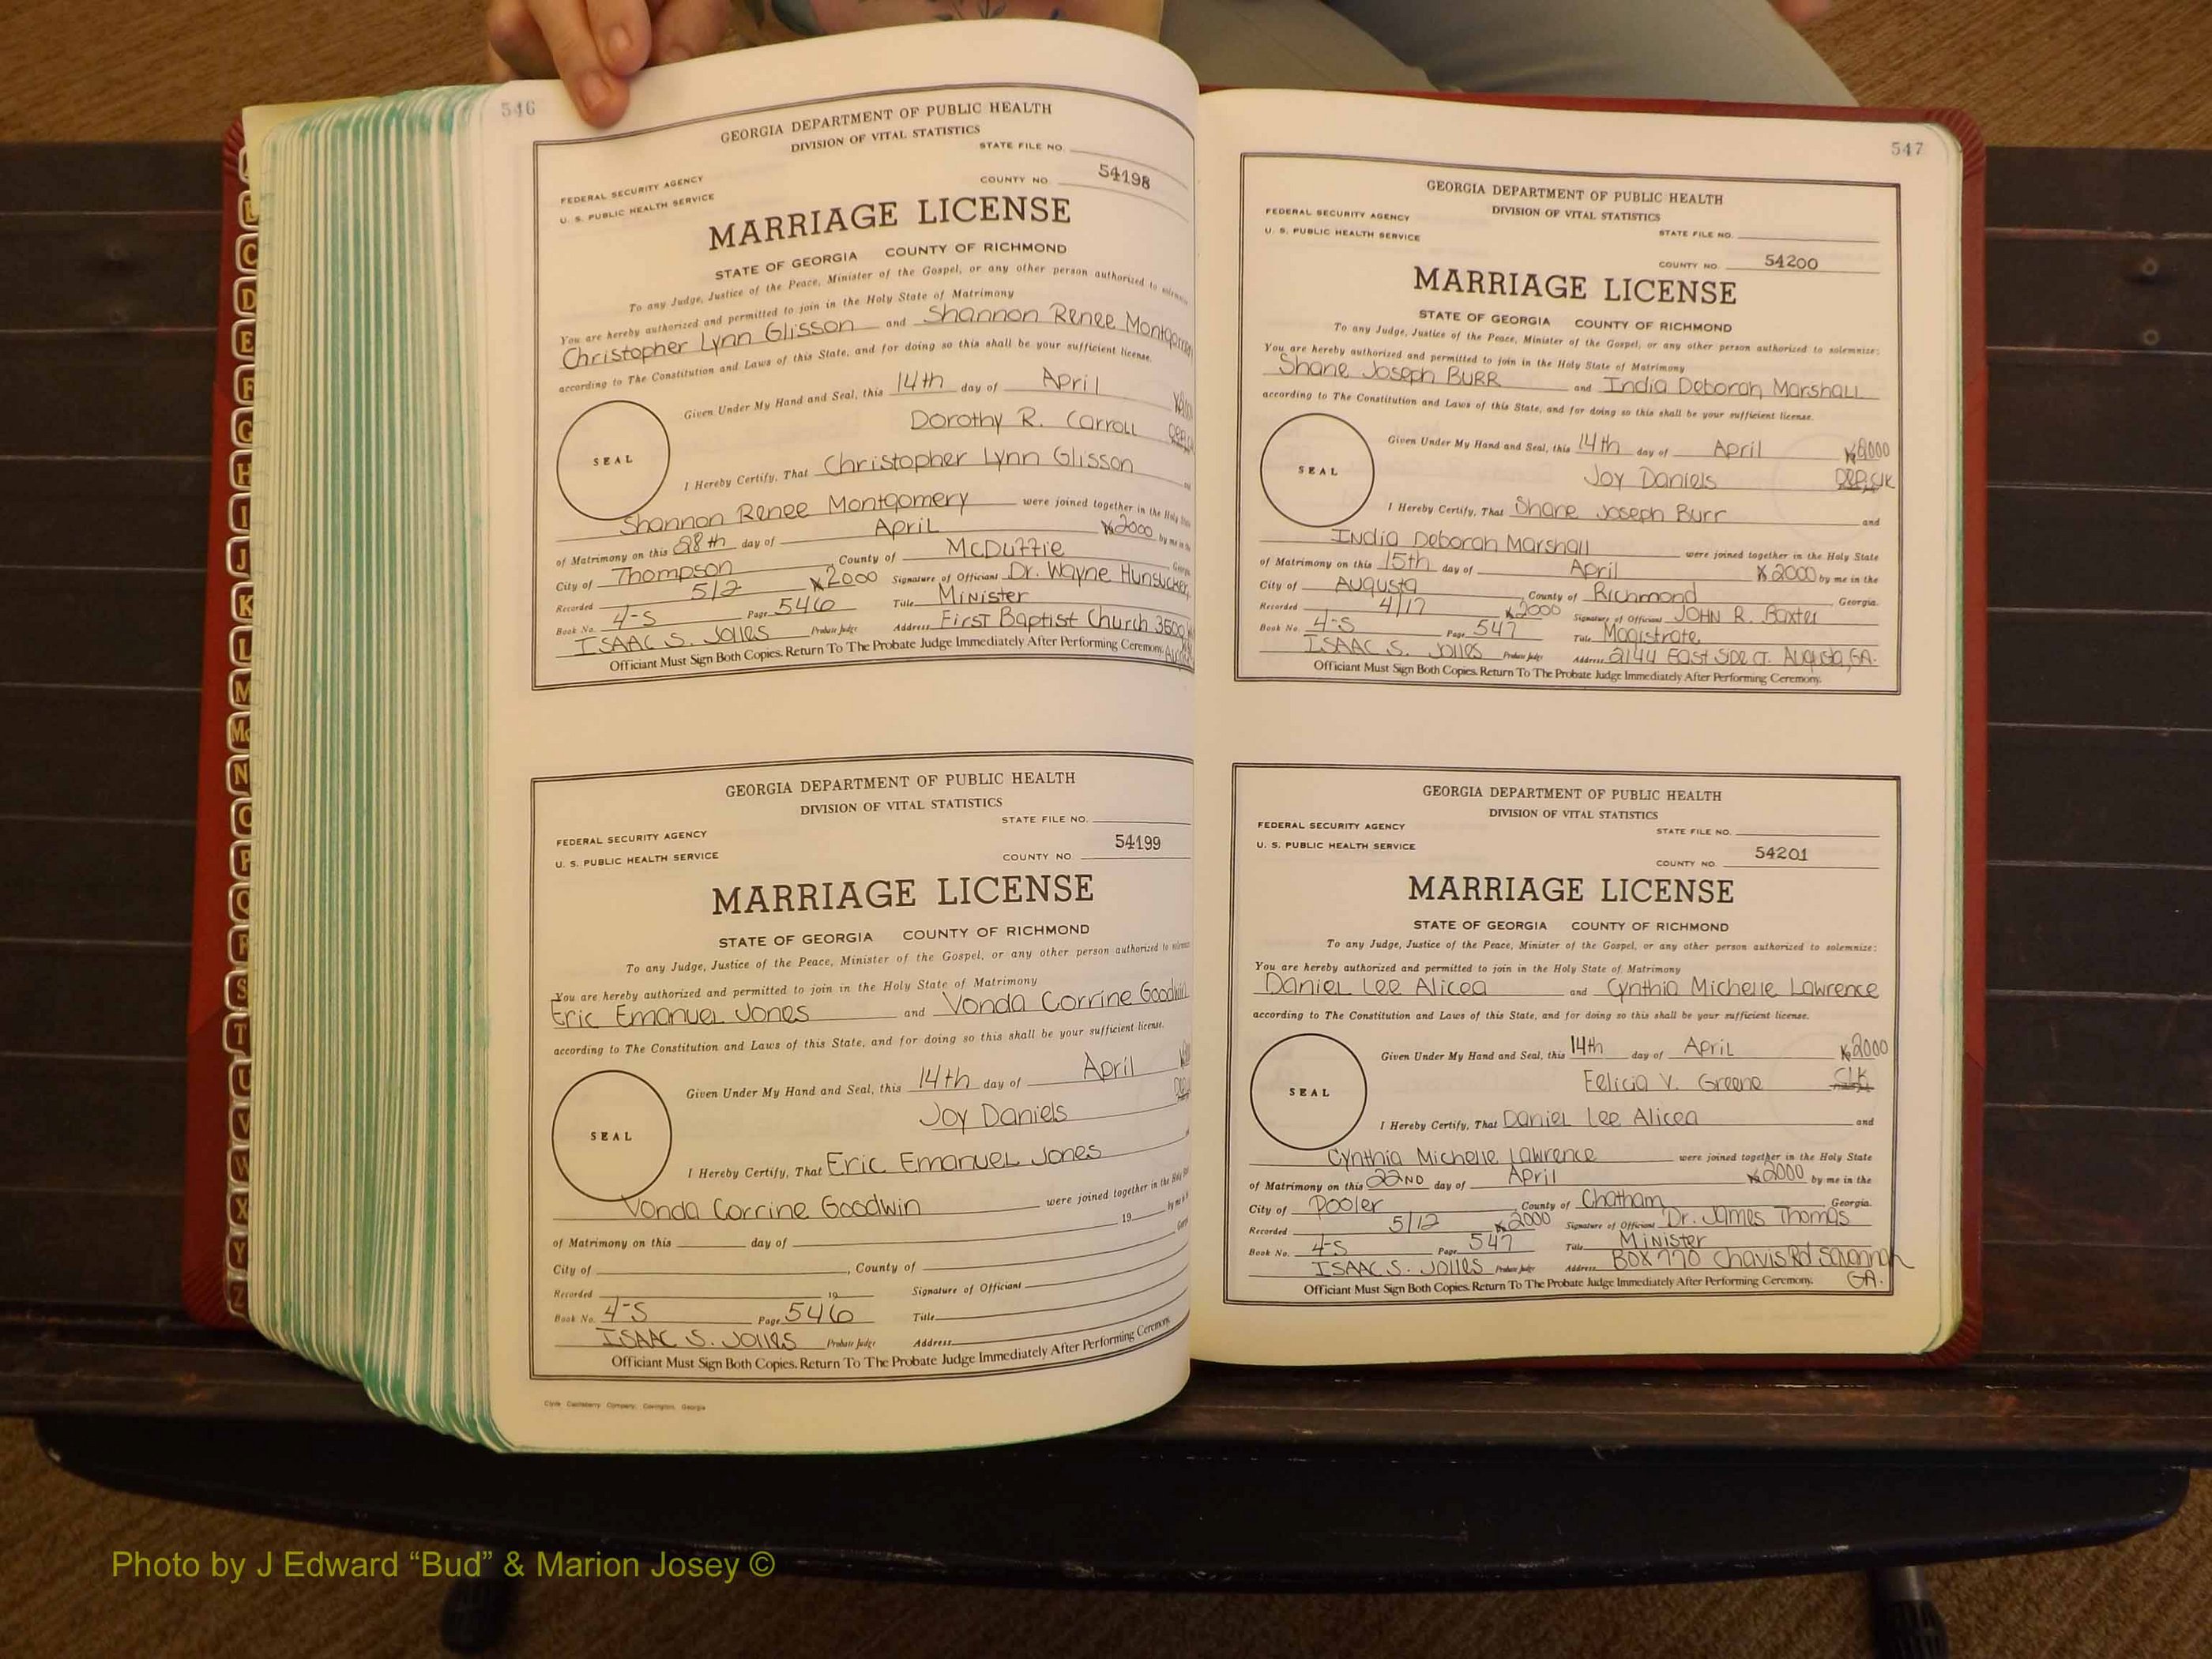 546
GEORGIA DEPARTMENT OF PUBLIC HEALTH
DIVISION OF VITAL STATISTICS
STATE FILE NO.
FEDERAL SECURITY AGENCY
U. S. PUBLIC HEALTH SERVICE
COUNTY NO. 54198
MARRIAGE LICENSE
STATE OF GEORGIA COUNTY OF RICHMOND
To any Judge, Justice of the Peace, Minister of the Gospel, or any other person authorized to
You are hereby authorized and permitted to join in the Holy State of Matrimony
Christopher Lynn Glisson and Shannon Renee
according to The Constitution and Laws of this State, and for doing so this shall be your sufficient license.
Given Under My Hand and Seal, this 14th day of April
Dorothy R. Carroll
SEAL
I Hereby Certify, That Christopher Lynn Glisson
Shannon Renee Montgomery were joined together in the Holy
of Matrimony on this 28th day of April 2000 by me in the
City of Thompson County of McDuffie
Recorded 5/2 2000 Signature of Officiant Dr. Wayne Hunsucker
Book No. 4-S Page 546 Title Minister
ISAAC S. JOLLES Probate Judge Address First Baptist Church 3500
Officiant Must Sign Both Copies. Return To The Probate Judge Immediately After Performing Ceremony.
GEORGIA DEPARTMENT OF PUBLIC HEALTH
DIVISION OF VITAL STATISTICS
STATE FILE NO.
FEDERAL SECURITY AGENCY
U. S. PUBLIC HEALTH SERVICE
COUNTY NO. 54199
MARRIAGE LICENSE
STATE OF GEORGIA COUNTY OF RICHMOND
To any Judge, Justice of the Peace, Minister of the Gospel, or any other person authorized to
You are hereby authorized and permitted to join in the Holy State of Matrimony
Eric Emanuel Jones and Vonda Corrine Goodwin
according to The Constitution and Laws of this State, and for doing so this shall be your sufficient license.
Given Under My Hand and Seal, this 14th day of April
Joy Daniels
SEAL
I Hereby Certify, That Eric Emanuel Jones
Vonda Corrine Goodwin were joined together in the Holy
of Matrimony on this day of 19
City of , County of
Recorded 19 Signature of Officiant
Book No. 4-S Page 546 Title
ISAAC S. JOLLES Probate Judge Address
Officiant Must Sign Both Copies. Return To The Probate Judge Immediately After Performing Ceremony.
Clyde Castleberry Company, Covington, Georgia
547
GEORGIA DEPARTMENT OF PUBLIC HEALTH
DIVISION OF VITAL STATISTICS
FEDERAL SECURITY AGENCY
U. S. PUBLIC HEALTH SERVICE
STATE FILE NO.
COUNTY NO. 54200
MARRIAGE LICENSE
STATE OF GEORGIA COUNTY OF RICHMOND
To any Judge, Justice of the Peace, Minister of the Gospel, or any other person authorized to solemnize:
You are hereby authorized and permitted to join in the Holy State of Matrimony
Shane Joseph BURR and India Deborah Marshall
according to The Constitution and Laws of this State, and for doing so this shall be your sufficient license.
Given Under My Hand and Seal, this 14th day of April 2000
Joy Daniels Dep. Clk
SEAL
I Hereby Certify, That Shane Joseph Burr and
India Deborah Marshall were joined together in the Holy State
of Matrimony on this 15th day of April 2000 by me in the
City of Augusta , County of Richmond Georgia.
Recorded 4/17 2000 Signature of Officiant JOHN R. Baxter
Book No. 4-S Page 547 Title Magistrate
ISAAC S. JOLLES Probate Judge Address 2144 East Side Ct. Augusta, GA.
Officiant Must Sign Both Copies. Return To The Probate Judge Immediately After Performing Ceremony.
GEORGIA DEPARTMENT OF PUBLIC HEALTH
DIVISION OF VITAL STATISTICS
FEDERAL SECURITY AGENCY
STATE FILE NO.
U. S. PUBLIC HEALTH SERVICE
COUNTY NO. 54201
MARRIAGE LICENSE
STATE OF GEORGIA COUNTY OF RICHMOND
To any Judge, Justice of the Peace, Minister of the Gospel, or any other person authorized to solemnize:
You are hereby authorized and permitted to join in the Holy State of Matrimony
Daniel Lee Alicea and Cynthia Michelle Lawrence
according to The Constitution and Laws of this State, and for doing so this shall be your sufficient license.
Given Under My Hand and Seal, this 14th day of April 2000
Felicia V. Greene Clk
SEAL
I Hereby Certify, That Daniel Lee Alicea and
Cynthia Michelle Lawrence were joined together in the Holy State
of Matrimony on this 22ND day of April 2000 by me in the
City of Pooler , County of Chatham , Georgia.
Recorded 5/12 2000 Signature of Officiant Dr. James Thomas
Book No. 4-S Page 547 Title Minister
ISAAC S. JOLLES Probate Judge Address BOX 770 Chavis Rd Savannah
GA.
Officiant Must Sign Both Copies. Return To The Probate Judge Immediately After Performing Ceremony.
C
D
E
F
G
H
I
J
K
L
M
Mc
N
O
P
Q
R
S
T
U
V
W
X
Y
Z
Photo by J Edward “Bud” & Marion Josey ©